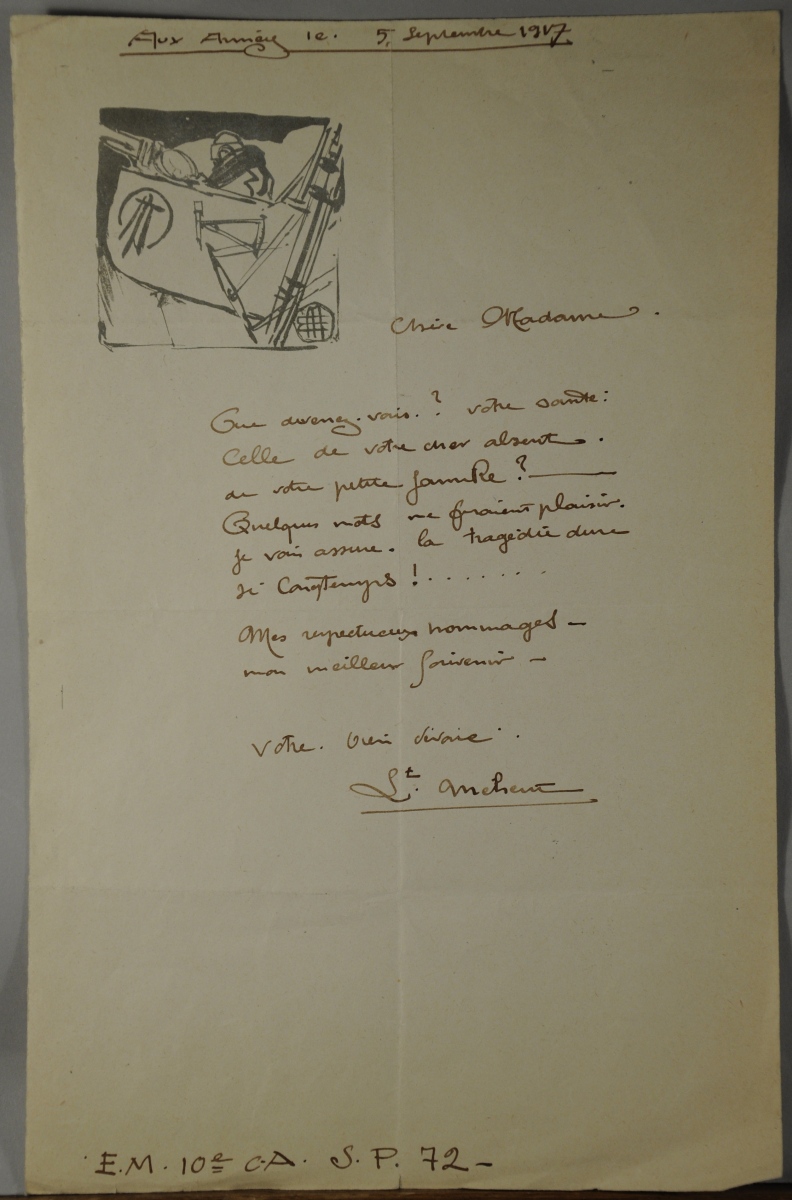 Aux Armées le. 5, Septembre 1917.
Chère Madame.
Que devenez-vous.? votre santé:
Celle de votre cher absent.
de votre petite famille?
Quelques mots me feraient plaisir.
je vous assure. la tragédie dure
si longtemps!.......
Mes respectueux hommages -
mon meilleur souvenir -
Votre. bien dévoué.
Lt. Meheut
E.M. 10e C.A. S.P. 72-